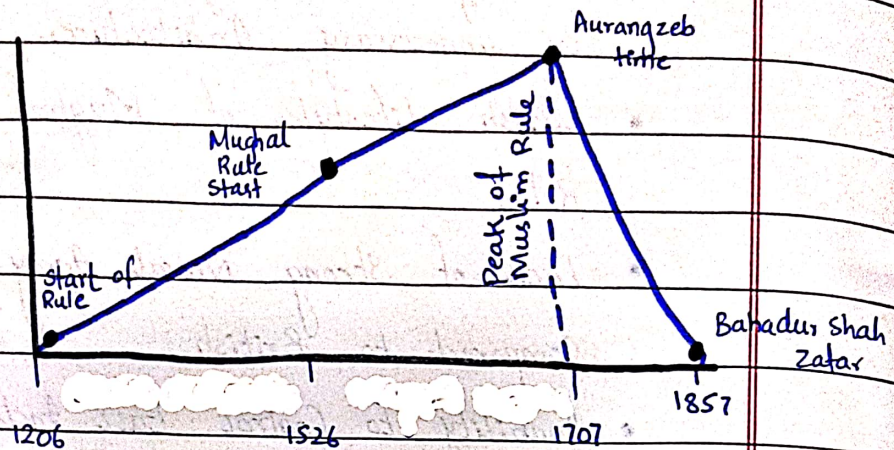 Aurangzeb
time
Mughal
Rule
Start
Peak of
Muslim Rule
Start of
Rule
Bahadur Shah
Zafar
1857
1206
1526
1707